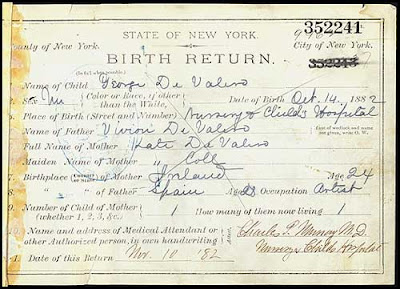 352241
STATE OF NEW YORK.
County of New York. City of New York.
BIRTH RETURN.
352243
Name of Child George De Valero
2. Sex M Color or Race, if other than the White, Date of Birth Oct. 14. 1882
Place of Birth (Street and Number) Nursery & Child's Hospital
Name of Father Vivion De Valero
Full Name of Mother Kate De Valero
6. Maiden Name of Mother " Coll
7. Birthplace of Mother Ireland Age 24
8. " of Father Spain Age 28 Occupation Artist
9. Number of Child of Mother (whether 1, 2, 3, &c.) 1 How many of them now living 1
10. Name and address of Medical Attendant or other Authorized person, in own handwriting Charles E. Murray M.D.
Nursery & Childs Hospital
Date of this Return Nov. 10 '82